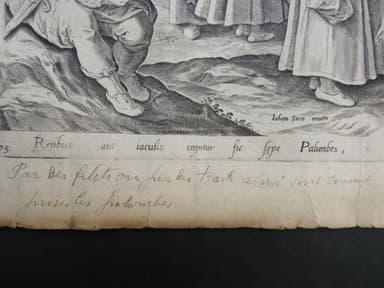 Iohan Stra inuen
75. Retibus aut iaculis capitur sic sepe Palumbes,
Par des filets ou par des traits ainsi sont souvent
prises les palombes